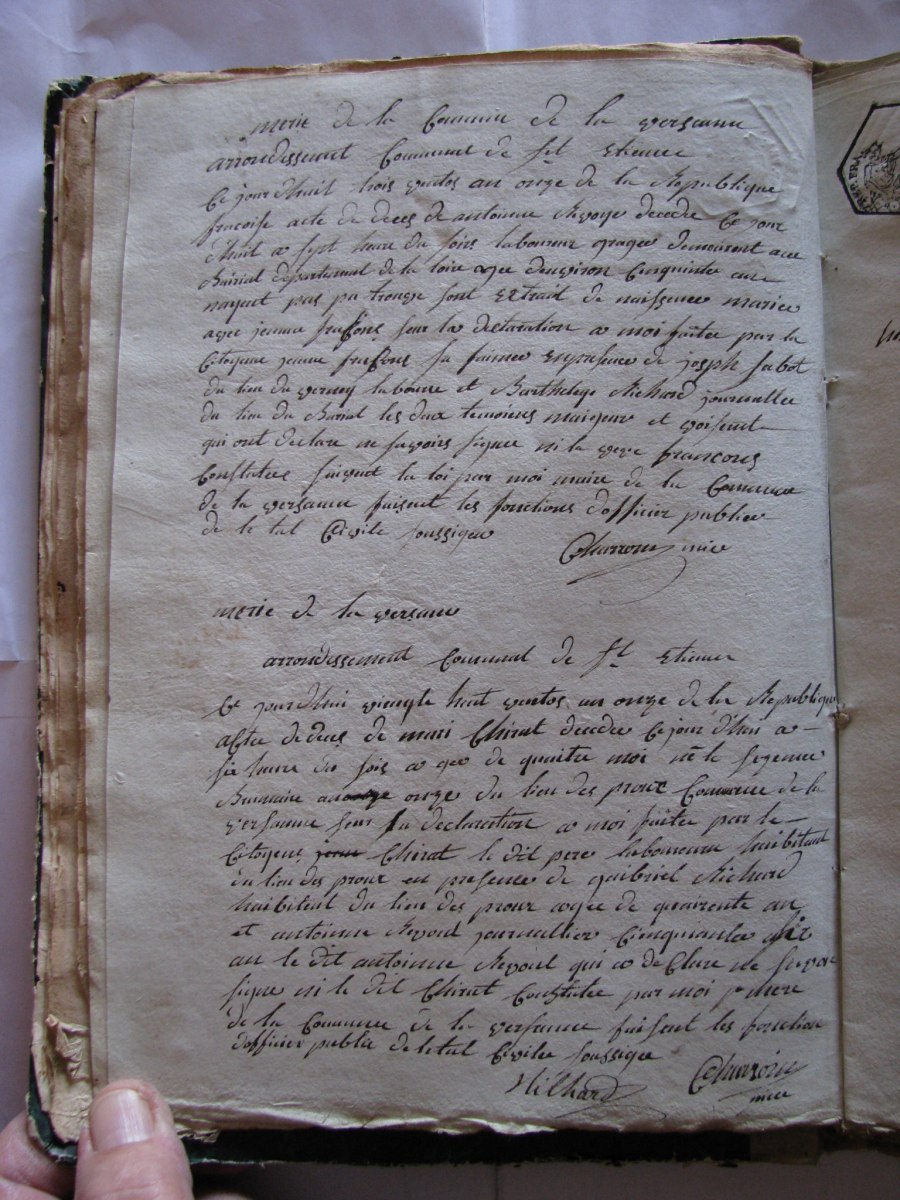 merie de la Comune de la versanne
arrondissement Comunal de st etienne
Ce jour dhuit trois ventos an onze de la Republique
francoise acte de deces de antoinne Revoye decede Ce jour
dhuit a sept heure du soirs laboureur demourent au
Buiriat departement de la loire agee denviron Cinquinte an
nayent pas pu trouve sont Extrait de naissence mariee
avec jeanne sur la declaration a moi faitee par la
Citoyene jeanne sa faimee enpresence de joseph sabot
du lieu du verney laboure et Barthelemy Richard journallie
du lieu du Buriat les deux temoiens maigeur et voisent
qui ont declare ne savoirs signe ni la veve francons
Constatee suivent la loi par moi maire de la Comunne
de la versanne faisent les fonctions dofficier publice
de le tat Civile soussignee
Charroin mire
merie de la versanne
arrondissement Comunal de st etienne
Ce jour dhui vingte huit ventos an onze de la Republique
aCtee de deces de mari Chirat decedee Ce jour dhui a
six heure du soir a gee de quaitre moi ne le
Brumaire onze du lieu des proux Comunne de la
versanne sur la declaration a moi faitee par le
Citoyens Chirat le dit pere laboureur haibitant
du lieu des proux en presence de gaibriel Richard
haibitent du lieu des proux agee de quairente an
et antoinne Revoul journallier Cinquantee
an le dit antoinne Revoul qui a de Clare ne
signe ni le dit Chirat Constatee par moi mere
de la Comunne de la versanne faisent les fonction
dofficier publie de letat Civilee soussigne
Richard Charroin
mire